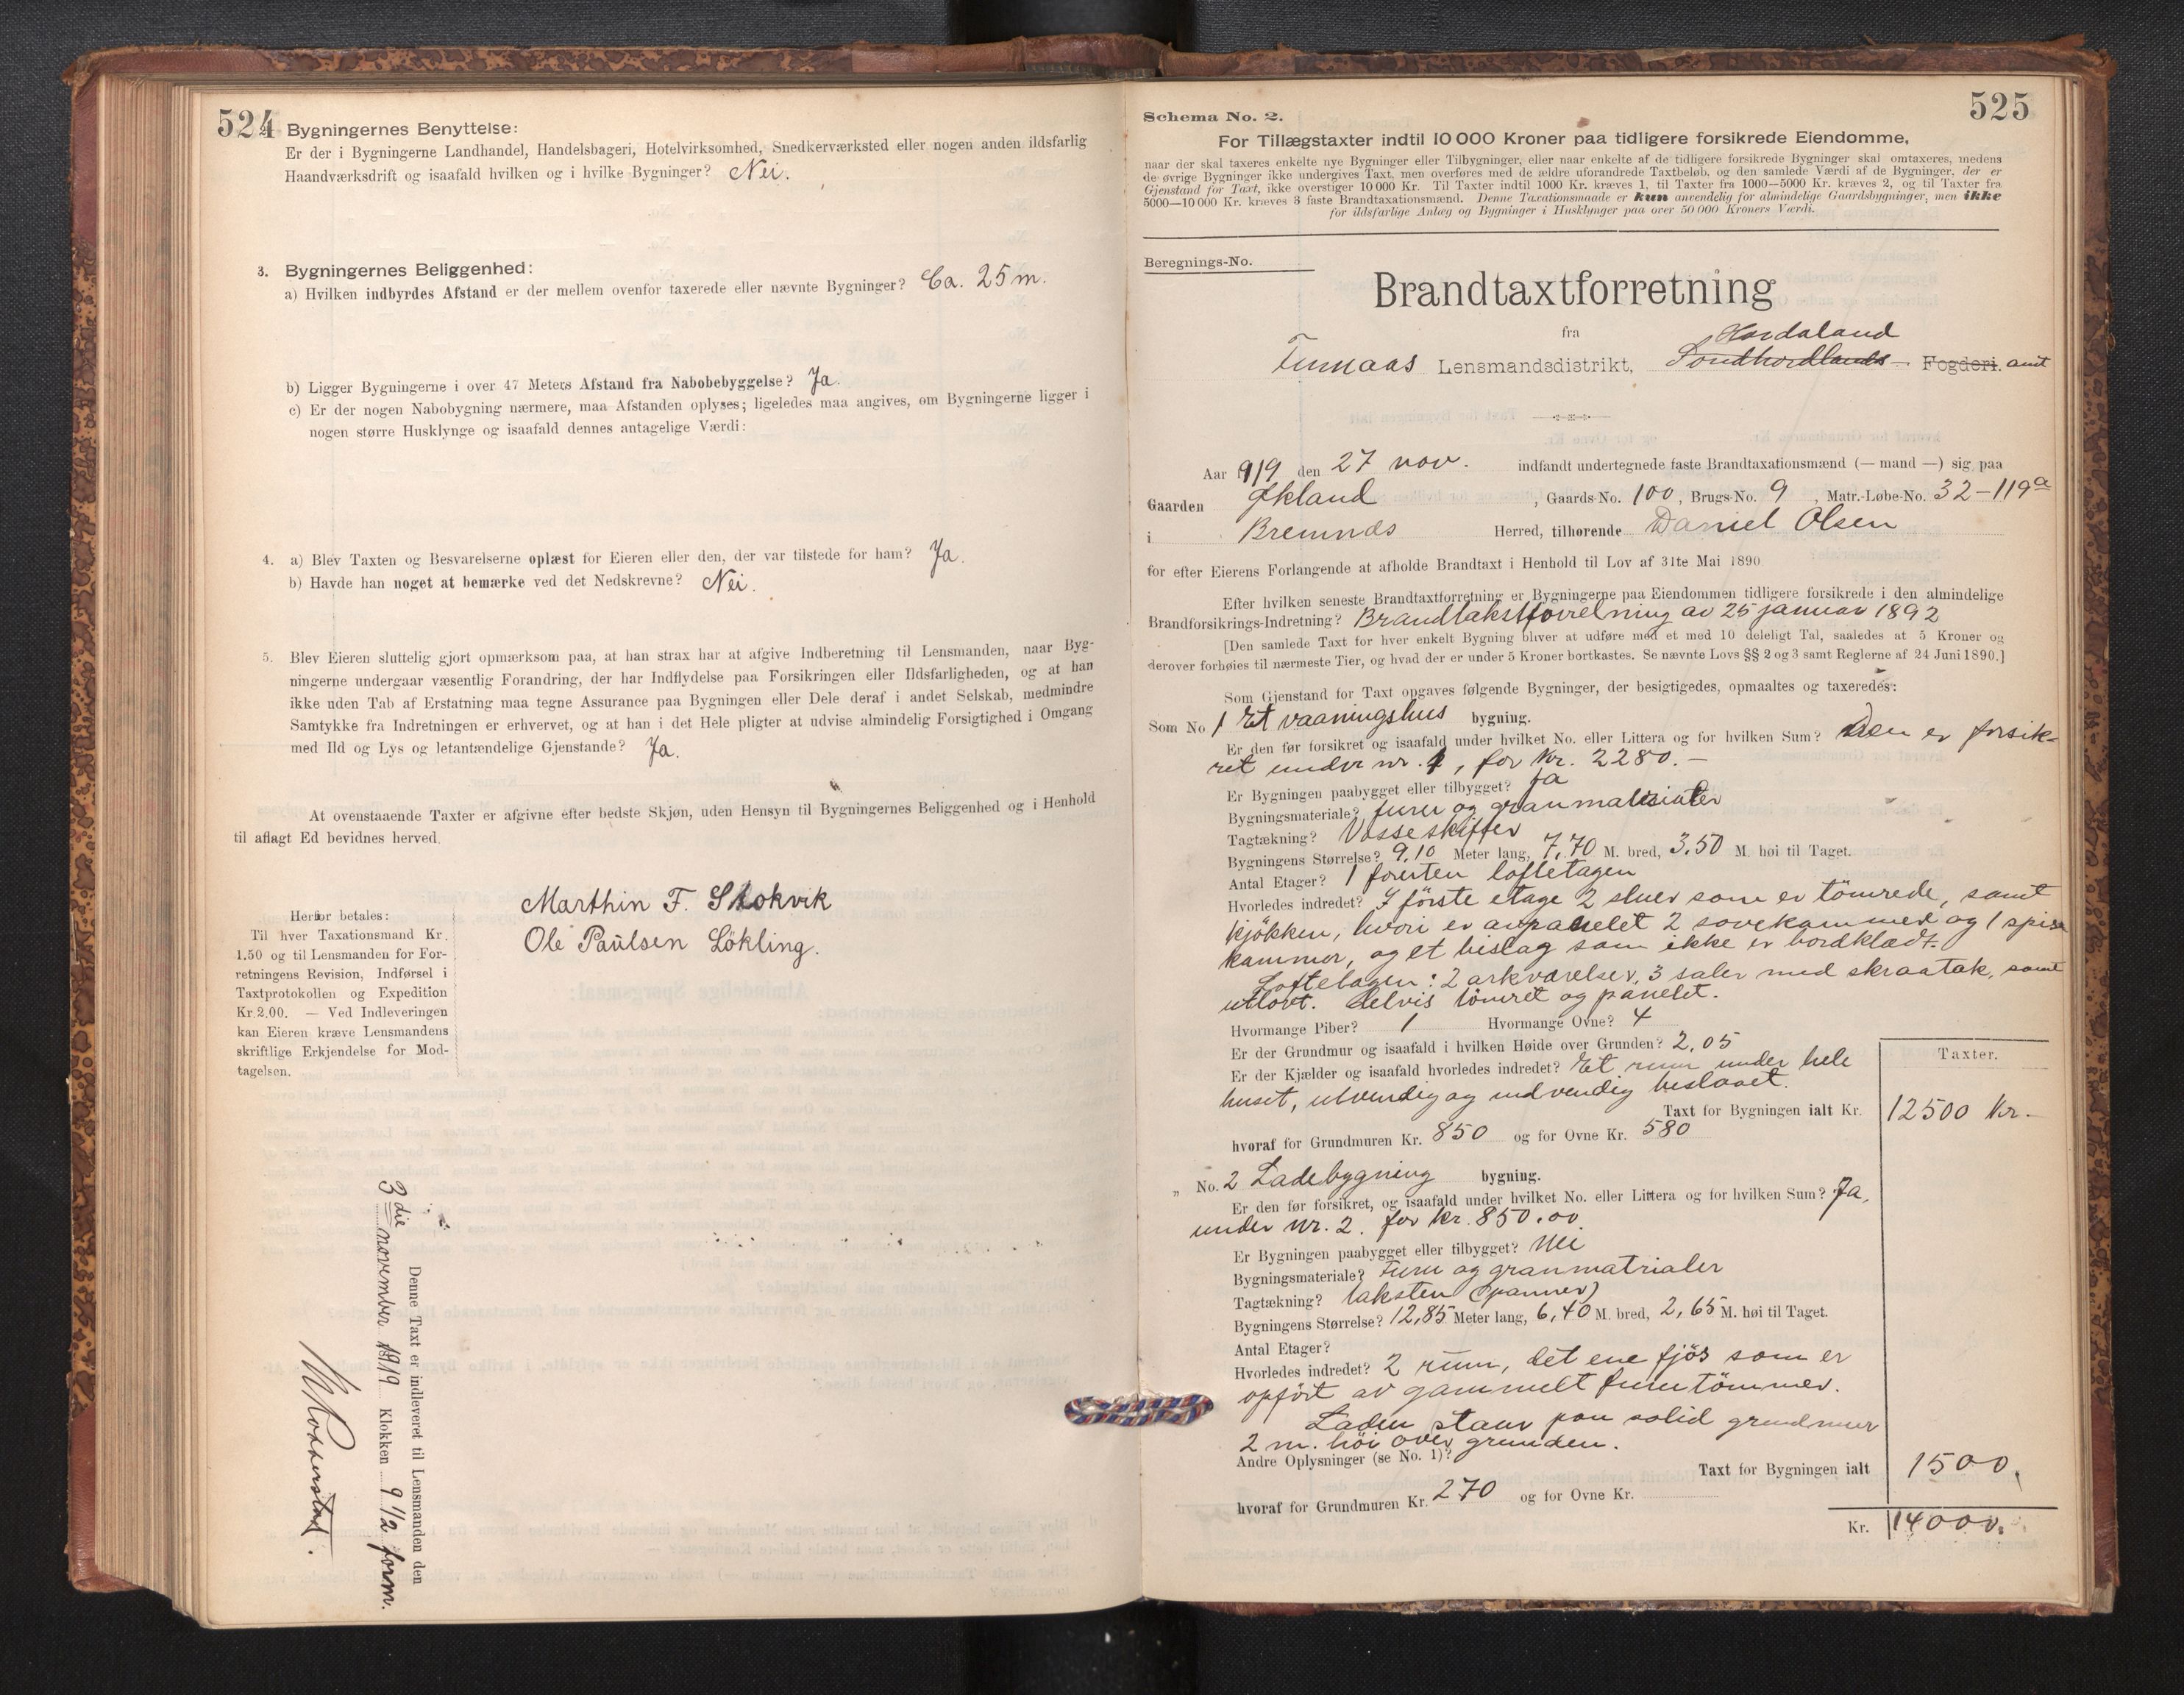 524
Bygningernes Benyttelse:
Er der i Bygningerne Landhandel, Handelsbageri, Hotelvirksomhed, Snedkerværksted eller nogen anden ildsfarlig
Haandværksdrift og isaafald hvilken og i hvilke Bygninger? Nei.
3. Bygningernes Beliggenhed:
a) Hvilken indbyrdes Afstand er der mellem ovenfor taxerede eller nævnte Bygninger? Ca. 25 m.
b) Ligger Bygningerne i over 47 Meters Afstand fra Nabobebyggelse? Ja.
c) Er der nogen Nabobygning nærmere, maa Afstanden oplyses; ligeledes maa angives, om Bygningerne ligger i
nogen større Husklynge og isaafald dennes antagelige Værdi:
4. a) Blev Taxten og Besvarelserne oplæst for Eieren eller den, der var tilstede for ham? Ja.
b) Havde han noget at bemærke ved det Nedskrevne? Nei.
5. Blev Eieren sluttelig gjort opmærksom paa, at han strax har at afgive Indberetning til Lensmanden, naar Byg-
ningerne undergaar væsentlig Forandring, der har Indflydelse paa Forsikringen eller Ildsfarligheden, og at han
ikke uden Tab af Erstatning maa tegne Assurance paa Bygningen eller Dele deraf i andet Selskab, medmindre
Samtykke fra Indretningen er erhvervet, og at han i det Hele pligter at udvise almindelig Forsigtighed i Omgang
med Ild og Lys og letantændelige Gjenstande? Ja.
At ovenstaaende Taxter er afgivne efter bedste Skjøn, uden Hensyn til Bygningernes Beliggenhed og i Henhold
til aflagt Ed bevidnes herved.
Marthin F. Stokvik
Ole Paulsen Lökling.
Herfor betales:
Til hver Taxationsmand Kr.
1.50 og til Lensmanden for For-
retningens Revision, Indførsel i
Taxtprotokollen og Expedition
Kr. 2.00. — Ved Indleveringen
kan Eieren kræve Lensmandens
skriftlige Erkjendelse for Mod-
tagelsen.
Denne Taxt er indleveret til Lensmanden den
3die november 1919 Klokken 9 1/2 form.
525
Schema No. 2.
For Tillægstaxter indtil 10 000 Kroner paa tidligere forsikrede Eiendomme,
naar der skal taxeres enkelte nye Bygninger eller Tilbygninger, eller naar enkelte af de tidligere forsikrede Bygninger skal omtaxeres, medens
de øvrige Bygninger ikke undergives Taxt, men overføres med de ældre uforandrede Taxtbeløb, og den samlede Værdi af de Bygninger, der er
Gjenstand for Taxt, ikke overstiger 10 000 Kr. Til Taxter indtil 1000 Kr. kræves 1, til Taxter fra 1000—5000 Kr. kræves 2, og til Taxter fra
5000—10 000 Kr. kræves 3 faste Brandtaxationsmænd. Denne Taxationsmaade er kun anvendelig for almindelige Gaardsbygninger, men ikke
for ildsfarlige Anlæg og Bygninger i Husklynger paa over 50 000 Kroners Værdi.
Beregnings-No.
Brandtaxtforretning
fra
Hordaland
Finnaas Lensmandsdistrikt, Søndhordlands Fogderi. amt
Aar 919 den 27 nov. indfandt undertegnede faste Brandtaxationsmænd (— mand —) sig paa
Gaarden Økland, Gaards-No. 100, Brugs-No. 9, Matr.-Løbe-No. 32-119a
i Bremnes Herred, tilhørende Daniel Olsen
for efter Eierens Forlangende at afholde Brandtaxt i Henhold til Lov af 31te Mai 1890
Efter hvilken seneste Brandtaxtforretning er Bygningerne paa Eiendommen tidligere forsikrede i den almindelige
Brandforsikrings-Indretning? Brandtakstforretning av 25 januar 1892
[Den samlede Taxt for hver enkelt Bygning bliver at udføre med et med 10 deleligt Tal, saaledes at 5 Kroner og
derover forhøies til nærmeste Tier, og hvad der er under 5 Kroner bortkastes. Se nævnte Lovs §§ 2 og 3 samt Reglerne af 24 Juni 1890.]
Som Gjenstand for Taxt opgaves følgende Bygninger, der besigtigedes, opmaaltes og taxeredes:
Som No 1 Et vaaningshus bygning.
Er den før forsikret og isaafald under hvilket No. eller Littera og for hvilken Sum? Den er forsik-
ret under nr. 1, for Kr. 2280.-
Er Bygningen paabygget eller tilbygget? Ja
Bygningsmateriale? furu og granmaterialer
Tagtækning? Vosseskiffer
Bygningens Størrelse? 9,10 Meter lang, 7,70 M. bred, 3.50 M. høi til Taget.
Antal Etager? 1 foruten loftetagen
Hvorledes indredet? I förste etage 2 stuer som er tömrede, samt
kjökken, hvori er avpanelet 2 sovekammer og 1 spise
kammer, og et bislag som ikke er bordklædt.
Loftetagen: 2 arkværelser, 3 saler med skraatak, samt
utlovt. Delvis tömret og panelet.
Hvormange Piber? 1 Hvormange Ovne? 4
Er der Grundmur og isaafald i hvilken Høide over Grunden? 2,05
Er der Kjælder og isaafald hvorledes indredet? Et rum under hele
huset, utvendig og indvendig beslaaet.
Taxter.
Taxt for Bygningen ialt Kr. 12500 Kr.-
hvoraf for Grundmuren Kr. 850 og for Ovne Kr. 580
„ No. 2 Ladebygning bygning.
Er den før forsikret, og isaafald under hvilket No. eller Littera og for hvilken Sum? Ja,
under nr. 2. for kr. 850.00.
Er Bygningen paabygget eller tilbygget? Nei
Bygningsmateriale? Furu og granmatrialer
Tagtækning? taksten (panner)
Bygningens Størrelse? 12,85 Meter lang, 6,40 M. bred, 2,65 M. høi til Taget.
Antal Etager?
Hvorledes indredet? 2 rum, det ene fjös som er
opfört av gammelt furutömmer.
Laden staar paa solid grundmur
2 m. höi over grunden.
Andre Oplysninger (se No. 1)?
Taxt for Bygningen ialt 1500.
hvoraf for Grundmuren Kr. 270 og for Ovne Kr.
Kr. 14000.